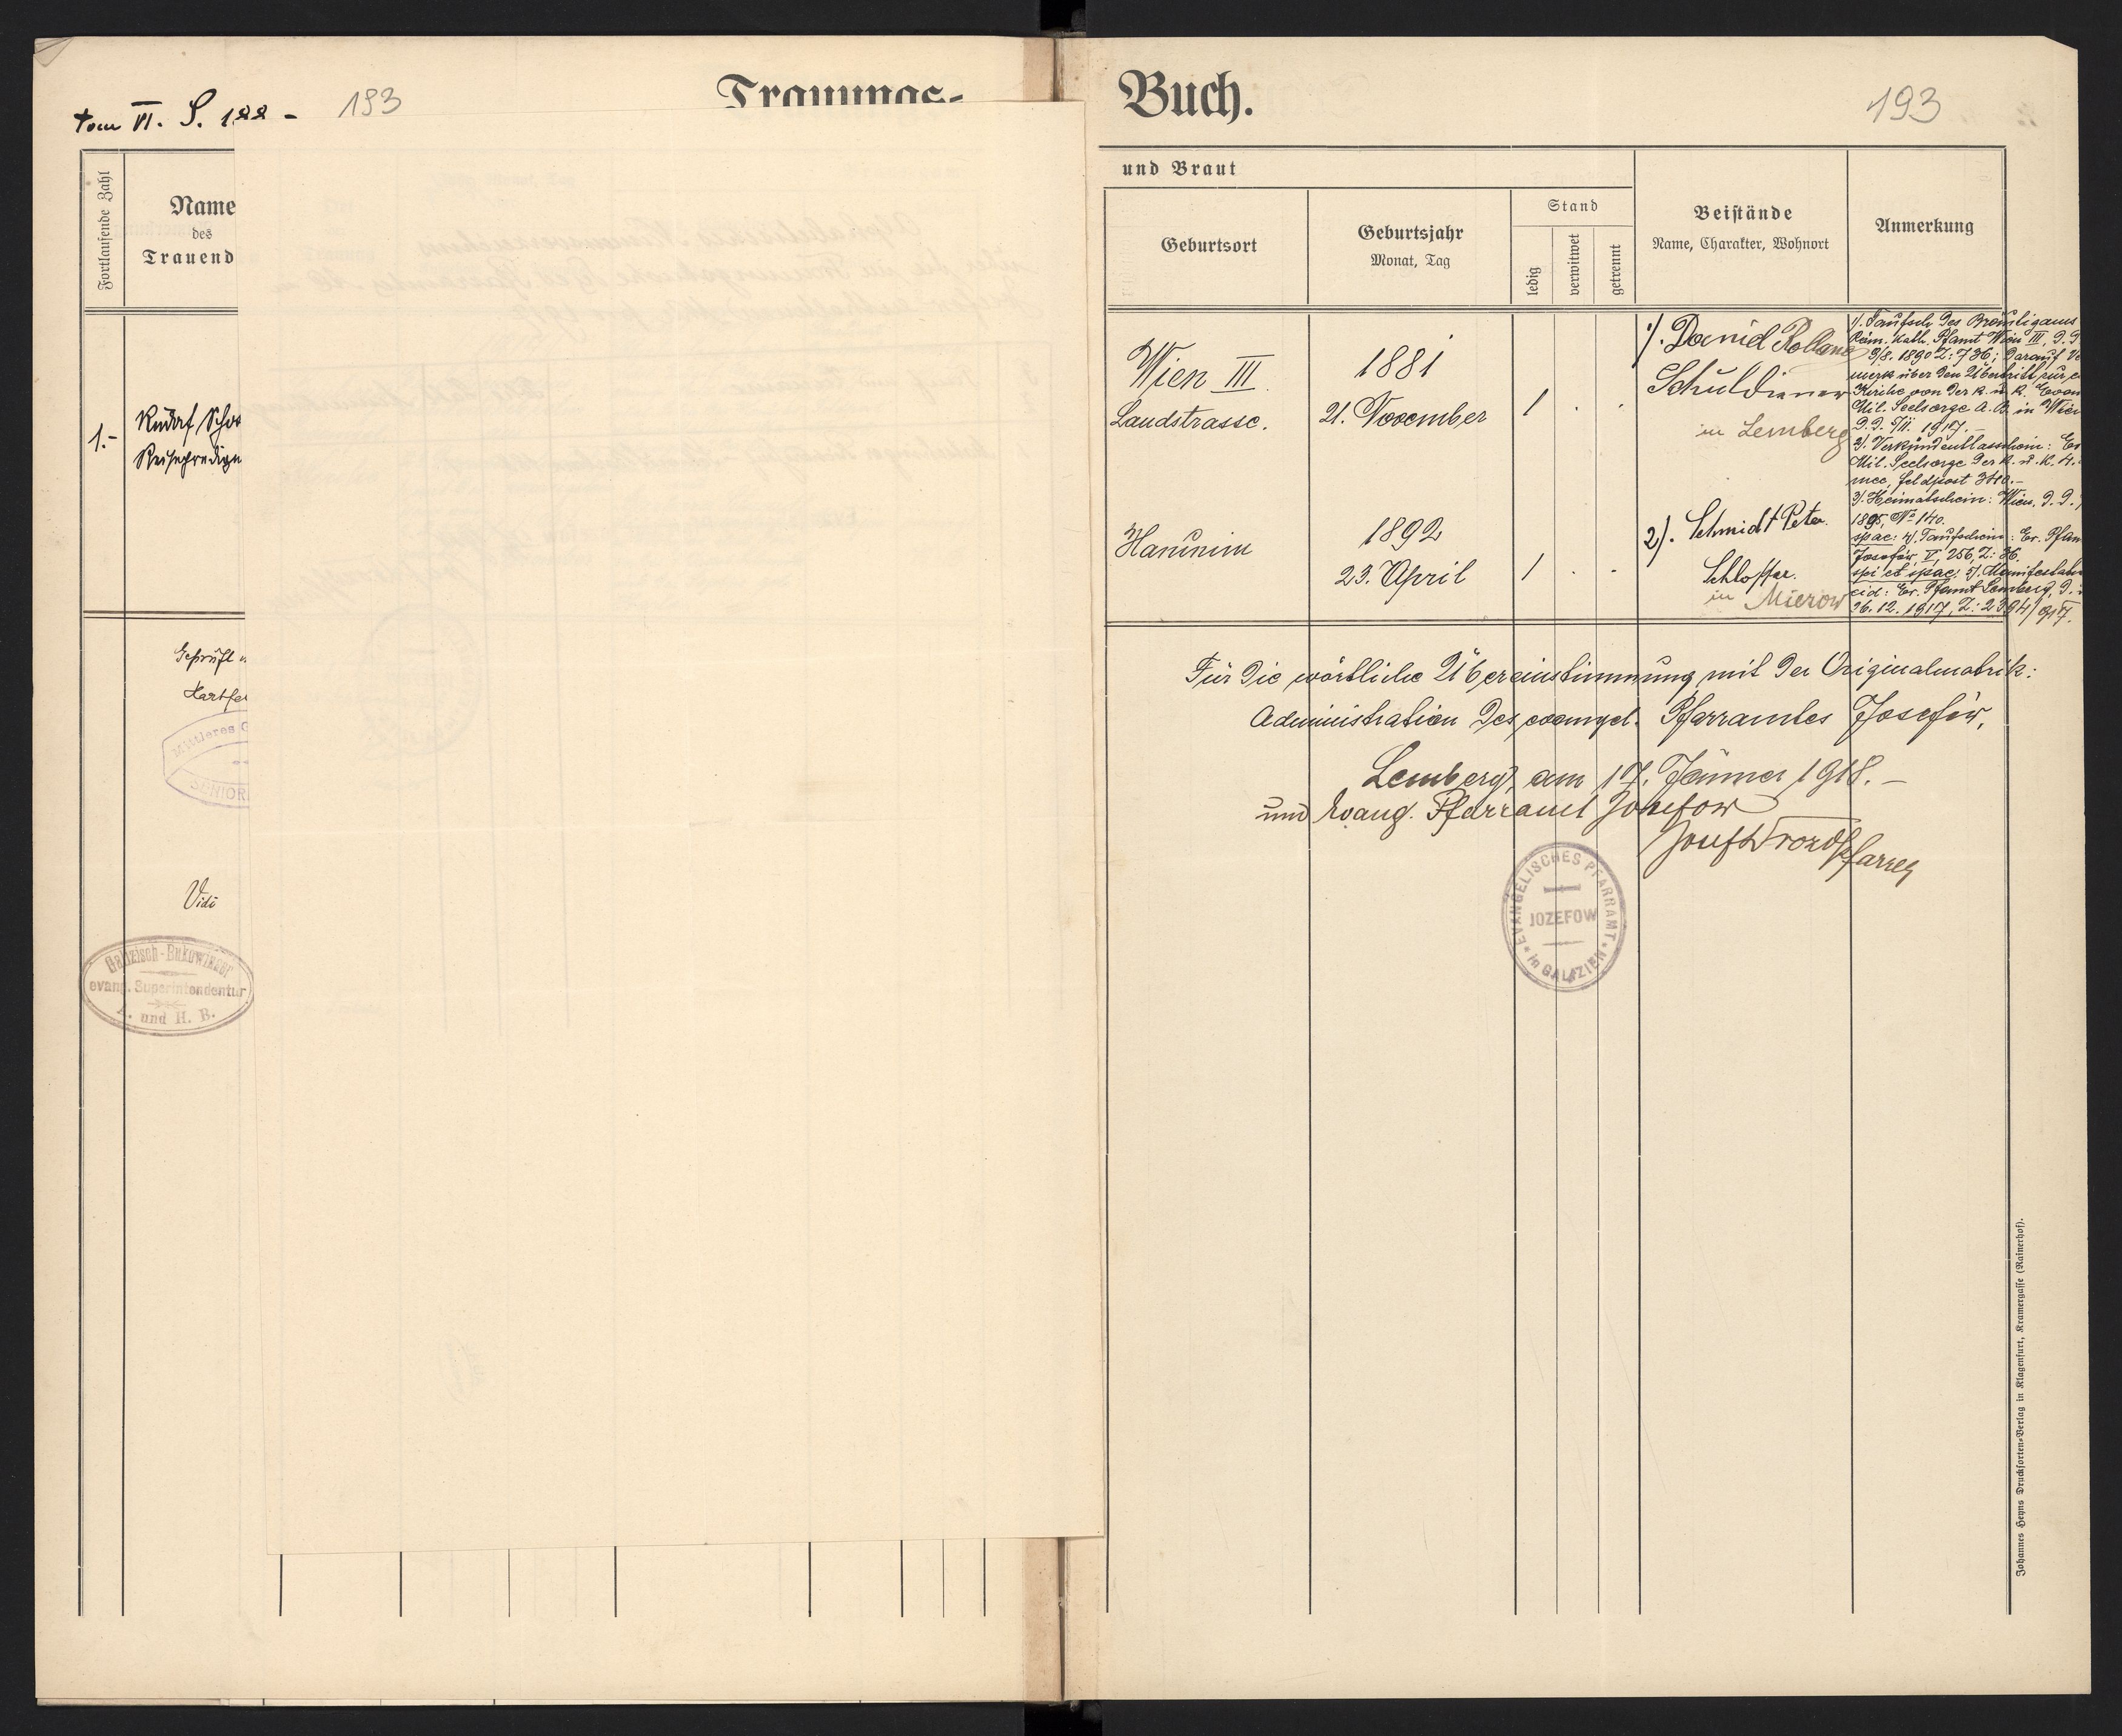 tom VI. S. 188 -
193
Trauungs-
Fortlaufende Zahl
Name
des
Trauend
1.-
Rudolf Schos
Reiseprediger
Geprüft
Mittleres
SENIOR
Vidi
Galizisch-Bukowinaer
evang. Superintendentur
A. und H. B.
Buch.
193
und Braut
Geburtsort
Geburtsjahr
Monat, Tag
Stand
ledig
verwitwet
getrennt
Beistände
Name, Charakter, Wohnort
Anmerkung
Wien III
Landstrasse.
1881
21. November
1 . .
1). Daniel Rolland
Schuldiener
in Lemberg
Hanunin
1892
23. April
1 . .
2). Schmidt Peter.
Schlosser.
in Mierow
1). Taufsch. des Bräutigams
Röm. Kath. Pfamt Wien III, d. d
9/8. 1890 Z: 736; Darauf Ve
merk über den Übertritt zur e
Kirche von der k. u. k. Evan
Mil. Seelsorge A. B. in Wien
d. d. 5/11. 1917.-
2). Verkündentlasschein: Ev
Mil. Seelsorge der k. u. k. 4.
mee, Feldpost 340.-
3). Heimatschein: Wien, d. d.
1895, No 140.
spae: 4). Taufschein: Ev. Pfam
Josefów V, 256, Z: 36.
spi et spae: 5). Manifestatio
eid: Ev. Pfamt Lemberg, d.
26.12.1917, Z: 2394/917.
Für die wörtliche Übereinstimmung mit der Originalmatrik:
Administration des evangel. Pfarramtes Josefów,
Lemberg, am 17. Jänner 1918.-
und Evang. Pfarramt Josefow
Josef Drozd Pfarrer
EVANGELISCHES PFARRAMT
JOZEFOW
in GALIZIEN
Johannes Heyns Drucksorten-Verlag in Klagenfurt, Kramergasse (Rainerhof).